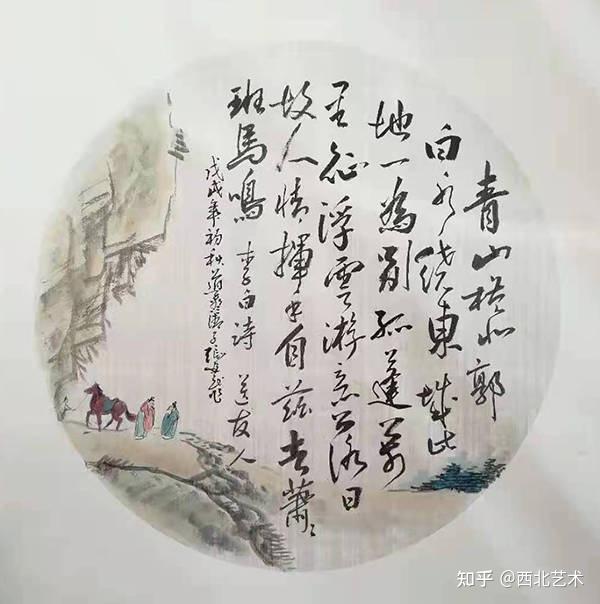 青山横北郭
白水绕東城此
地一為别孤蓬萬
里征浮雲游意落日
故人情揮手自兹去蕭〻
班馬鳴 李白诗 送友人
戊戌年初秋
知乎 @西北艺术